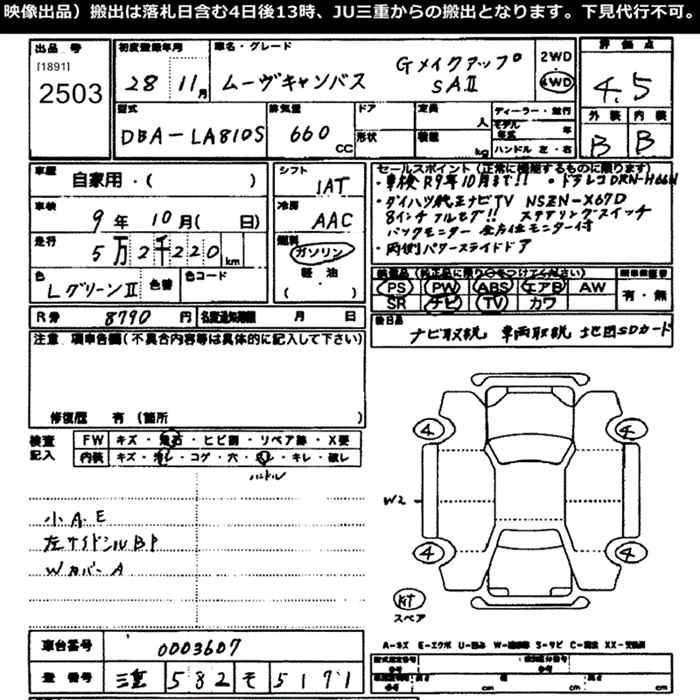 映像出品）搬出は落札日含む4日後13時、JU三重からの搬出となります。下見代行不可。
出品 番号
[1891]
2503
初度登録年月
28年 11月
車名・グレード
ムーヴキャンバス
Gメイクアップ
SAⅡ
2WD
4WD
評価点
4.5
外装 内装
B B
型式
DBA-LA810S
排気量
660 CC
ドア
形状
定員 人
積載 kg
ディーラー・並行
モデル年式 年
ハンドル 左・右
車歴
自家用・( )
車検
9年 10月( 日)
走行
5万2千220 km
色
LグリーンⅡ
色番
色コード
シフト
IAT
冷房
AAC
燃料
ガソリン
軽油
( )
セールスポイント（正常に機能するものに限ります）
・車検R9年10月まで!! ・ドラレコ DRN-H66N
・ダイハツ純正ナビTV NSZN-X67D
8インチフルセグ!! ステアリングスイッチ
バックモニター 全方位モニター付
・両側パワースライドドア
装備品（純正品に限り○をつけてください）
PS PW ABS エアB AW
SR ナビ TV カワ
新車保証書
有・無
R券 8790円
名義変更期限 月 日
後日品
ナビ取説 車両取説 地図SDカード
注意事項申告欄（不具合内容等は具体的に記入して下さい）
修復歴 有（箇所 ）
検査記入
FW キズ・飛石・ヒビ割・リペア跡・X要
内装 キズ・汚レ・コゲ・穴・スレ・キレ・破レ
ハンドル
小A.E
左サイドシルBP
WカバーA
4
4
W2
4
4
スペア
車台番号 0003607
登録番号 三重 582 モ 5171
A-キズ E-エクボ U-凹み W-補修跡 S-サビ C-腐食 XX-交換済
cm cm cm